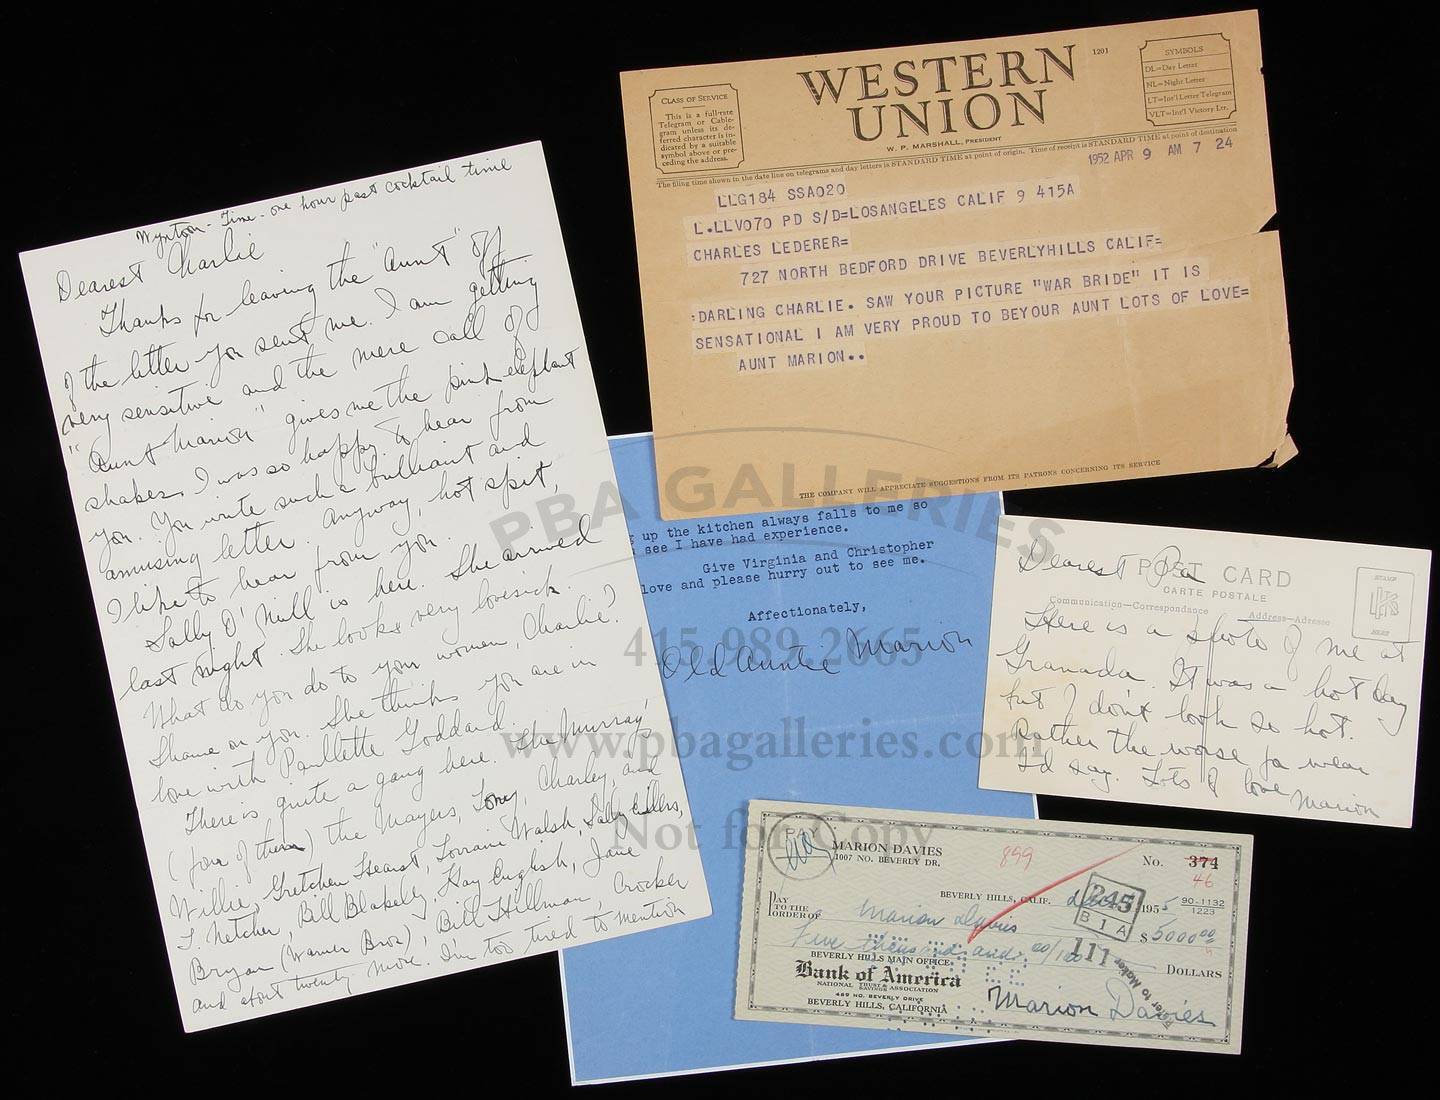 Wyntoon - Time - one hour past cocktail time
Dearest Charlie
Thanks for leaving the "Aunt" off
of the letter you sent me. I am getting
very sensitive and the mere call of
"Aunt Marion" gives me the pink elephant
shakes. I was so happy to hear from
you. You write such a brilliant and
amusing letter. Anyway, hot spit,
I like to hear from you.
Sally O'Neill is here. She arrived
last night. She looks very lovesick.
What do you do to your women, Charlie?
Shame on you. She thinks you are in
love with Paullette Goddard.
There is quite a gang here. The Murray's
(four of them) the Mayers, Toney, Charley, and
Willie, Gretchen Hearst, Lorraine Walsh, Sally Eillers,
T. Netcher, Bill Blakely, Kay English, Jane
Bryan (Warner Bros), Bill Hillman, Crocker
and about twenty more. I'm too tired to mention
WESTERN
UNION
1201
W. P. MARSHALL, PRESIDENT
CLASS OF SERVICE
This is a full-rate
Telegram or Cable-
gram unless its de-
ferred character is in-
dicated by a suitable
symbol above or pre-
ceding the address.
SYMBOLS
DL=Day Letter
NL=Night Letter
LT=Int'l Letter Telegram
VLT=Int'l Victory Ltr.
The filing time shown in the date line on telegrams and day letters is STANDARD TIME at point of origin. Time of receipt is STANDARD TIME at point of destination
1952 APR 9 AM 7 24
LLG184 SSA020
L.LLV070 PD S/D=LOSANGELES CALIF 9 415A
CHARLES LEDERER=
727 NORTH BEDFORD DRIVE BEVERLYHILLS CALIF=
:DARLING CHARLIE. SAW YOUR PICTURE "WAR BRIDE" IT IS
SENSATIONAL I AM VERY PROUD TO BEYOUR AUNT LOTS OF LOVE=
AUNT MARION..
THE COMPANY WILL APPRECIATE SUGGESTIONS FROM ITS PATRONS CONCERNING ITS SERVICE
PBA GALLERIES
415.989.2665
www.pbagalleries.com
Not for Copy
up the kitchen always falls to me so
see I have had experience.
Give Virginia and Christopher
love and please hurry out to see me.
Affectionately,
Old Auntie Marion
POST CARD
CARTE POSTALE
Communication—Correspondance
Address—Adresse
STAMP
HERE
Dearest Pa
Here is a photo of me at
Granada. It was a hot day
but I don't look so hot.
Rather the worse for wear
I'd say. Lots of love
Marion
MARION DAVIES
1007 NO. BEVERLY DR.
899
No. 374
46
BEVERLY HILLS, CALIF. 1955
90-1132
1223
245
B I A
PAY
TO THE
ORDER OF Marion Davies $5000.00
Five thousand and 00/100 DOLLARS
117
BEVERLY HILLS MAIN OFFICE
Bank of America
NATIONAL TRUST & SAVINGS ASSOCIATION
469 NO. BEVERLY DRIVE
BEVERLY HILLS, CALIFORNIA
Marion Davies
Refer to Maker